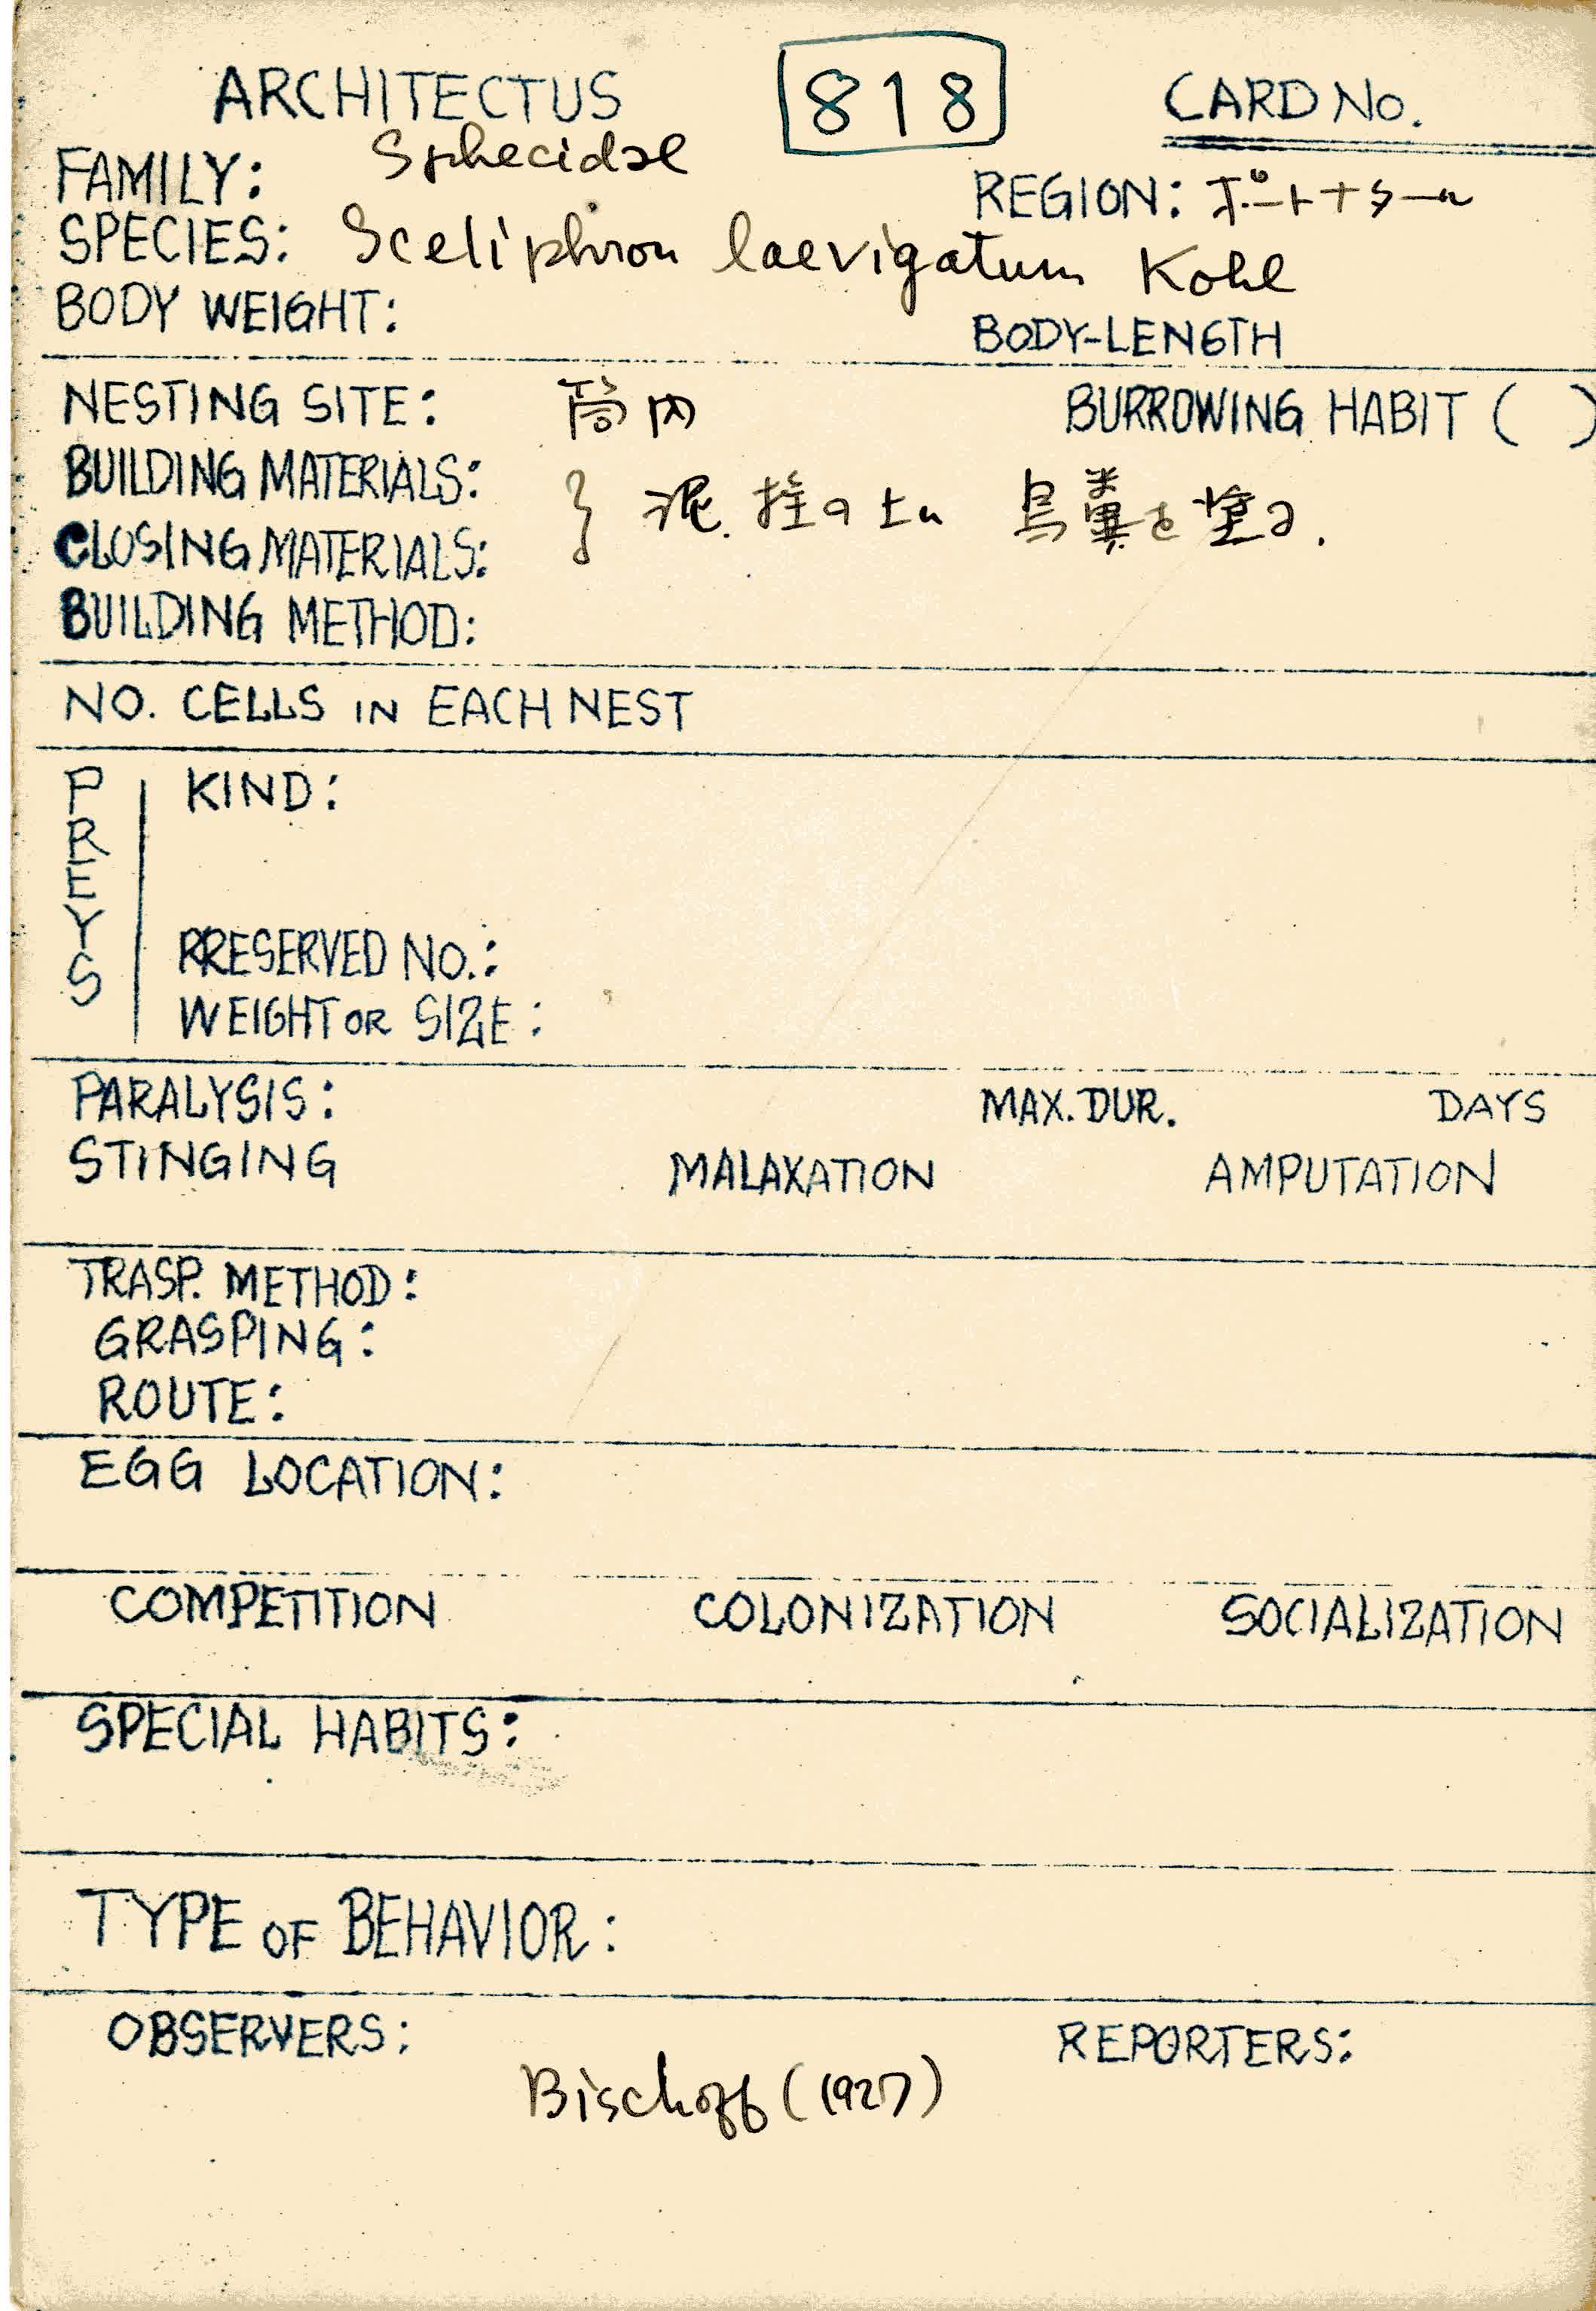 ARCHITECTUS 818 CARD No.
FAMILY: Sphecidae
REGION: ポートナタール
SPECIES: Sceliphron laevigatum Kohl
BODY WEIGHT:
BODY-LENGTH
NESTING SITE: 筒内 BURROWING HABIT ( )
BUILDING MATERIALS:
} 泥. 栓の上に 鳥糞を塗る.
CLOSING MATERIALS:
BUILDING METHOD:
NO. CELLS IN EACH NEST
PREYS
KIND:
PRESERVED NO.:
WEIGHT OR SIZE:
PARALYSIS: MAX. DUR. DAYS
STINGING MALAXATION AMPUTATION
TRASP. METHOD:
GRASPING:
ROUTE:
EGG LOCATION:
COMPETITION COLONIZATION SOCIALIZATION
SPECIAL HABITS:
TYPE OF BEHAVIOR:
OBSERVERS: REPORTERS:
Bischoff (1927)